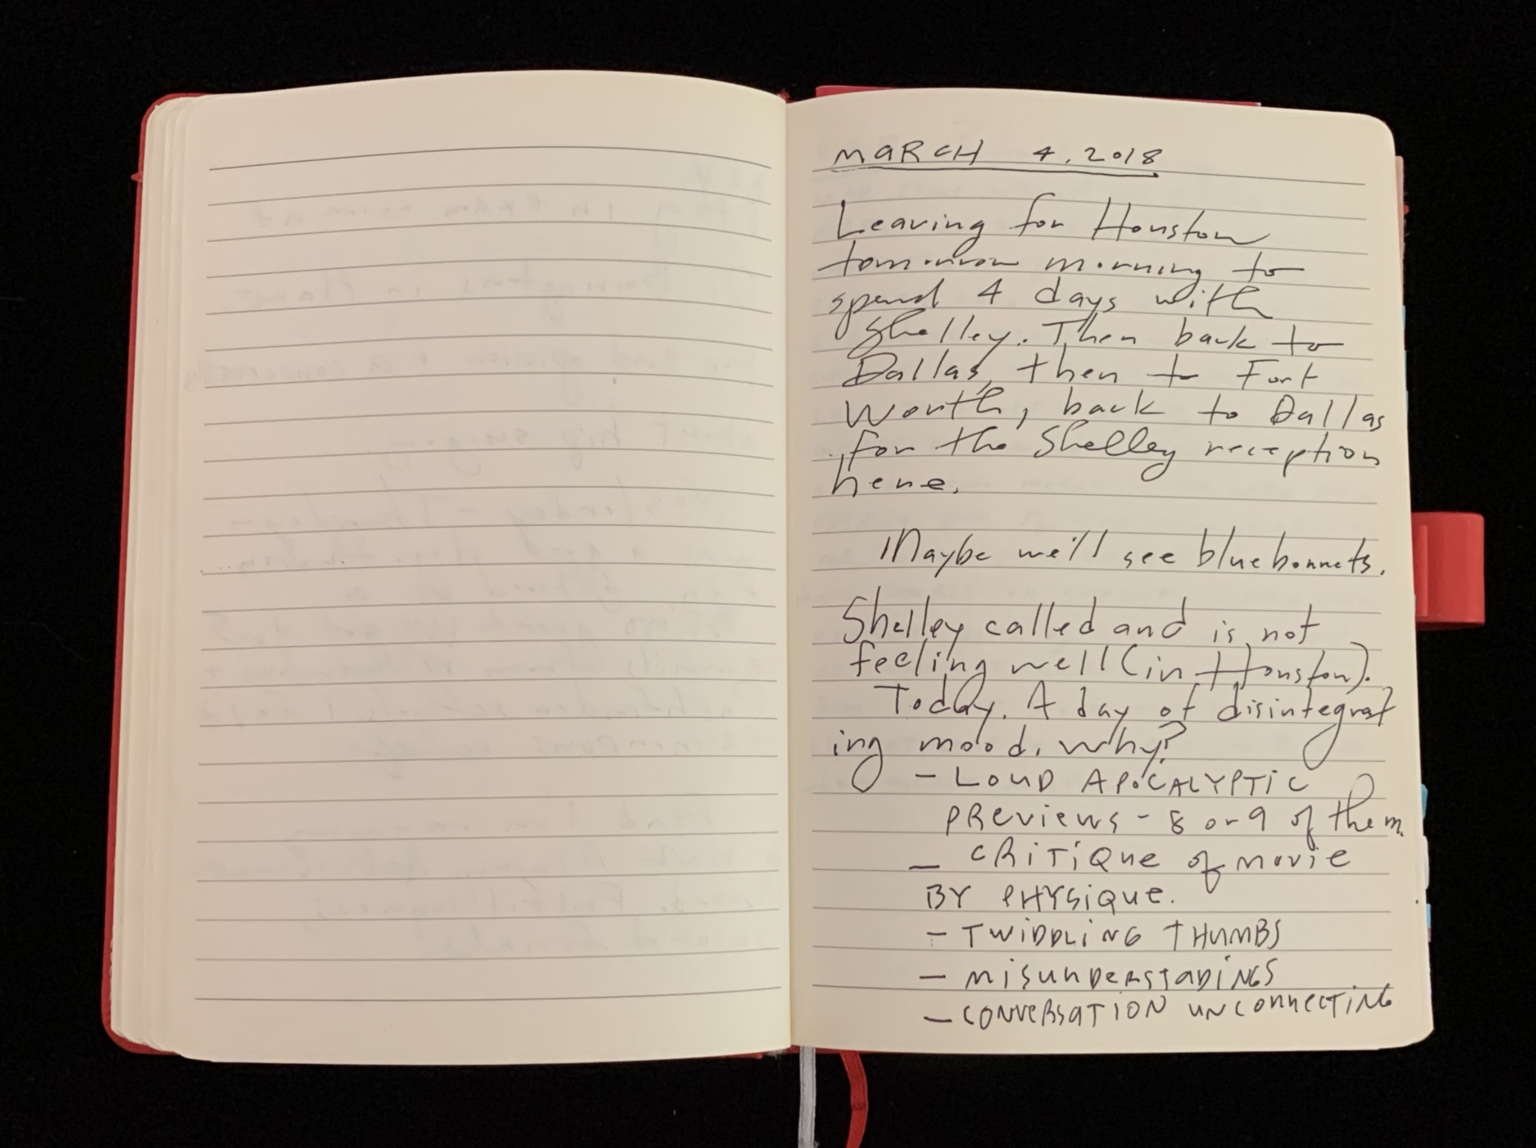 MARCH 4, 2018
Leaving for Houston
tomorrow morning to
spend 4 days with
Shelley. Then back to
Dallas, then to Fort
Worth, back to Dallas
for the Shelley reception
here.
Maybe we'll see bluebonnets.
Shelley called and is not
feeling well (in Houston).
Today. A day of disintegrat
ing mood. Why?
- LOUD APOCALYPTIC
PREVIEWS - 8 or 9 of them.
- CRITIQUE of MOVIE
BY PHYSIQUE.
- TWIDDLING THUMBS
- MISUNDERSTADINGS
- CONVERSATION UNCONNECTING